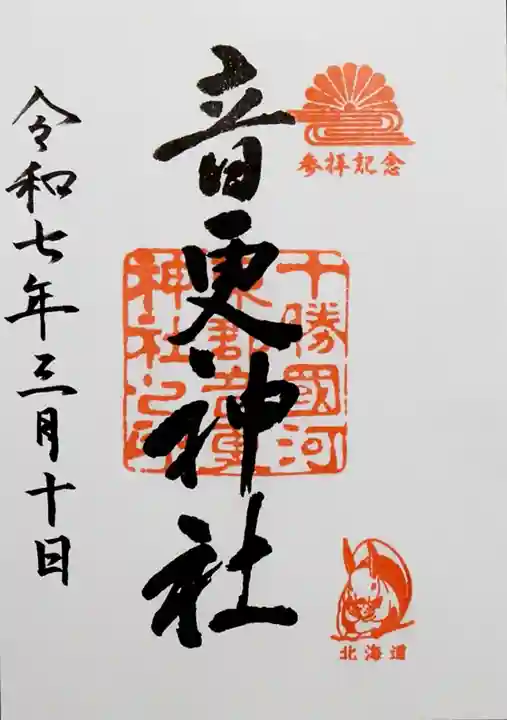 参拝記念
音更神社
十勝國河
東郡音更
神社之印
北海道
令和七年三月十日